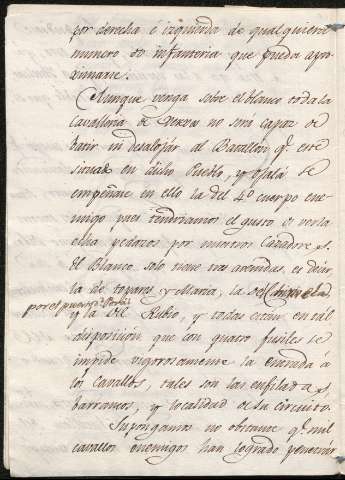 por derecha é izquierda de qualquiera
numero de infanteria que pueda apro
ximarse.
Aunque venga sobre el blanco toda la
Cavalleria de no será capaz de
batir ni desalojar al Batallón q.e esté
situado en dicho Pueblo, y ojalá se
empeñase en ello la del 4.o cuerpo ene-
migo pues tendriamos el gusto de verla
echa pedazos por nuestros Cazadores.
El Blanco solo tiene tres avenidas, es decir
la de topares y Maria, la del
por el puerto
y la del Rubio, y todas estan en tal
disposición que con quatro fusiles se
impide vigorosamente la entrada á
los cavallos, tales son las enfiladas,
barrancos, y localidad de su circuito.
Supongamos no obstante q.e mil
cavallos enemigos han logrado penetrar